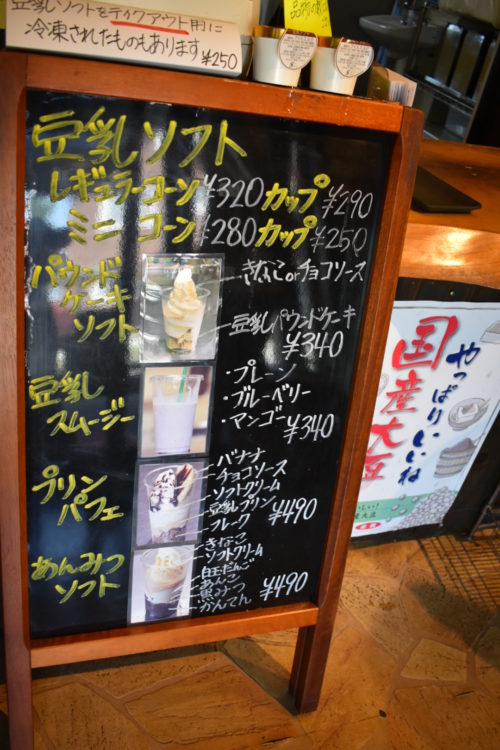 豆乳ソフトをテイクアウト用に
冷凍されたものもあります ¥250
豆乳ソフト
レギュラーコーン ¥320 カップ ¥290
ミニコーン ¥280 カップ ¥250
パウンド
ケーキ
ソフト
きなこorチョコソース
豆乳パウンドケーキ
¥340
豆乳
スムージー
・プレーン
・ブルーベリー
・マンゴー ¥340
プリン
パフェ
バナナ
チョコソース
ソフトクリーム
豆乳プリン
フレーク
¥490
あんみつ
ソフト
きなこ
ソフトクリーム
白玉だんご
あんこ
黒みつ
かんてん
¥490
やっぱりいいね
国産大豆